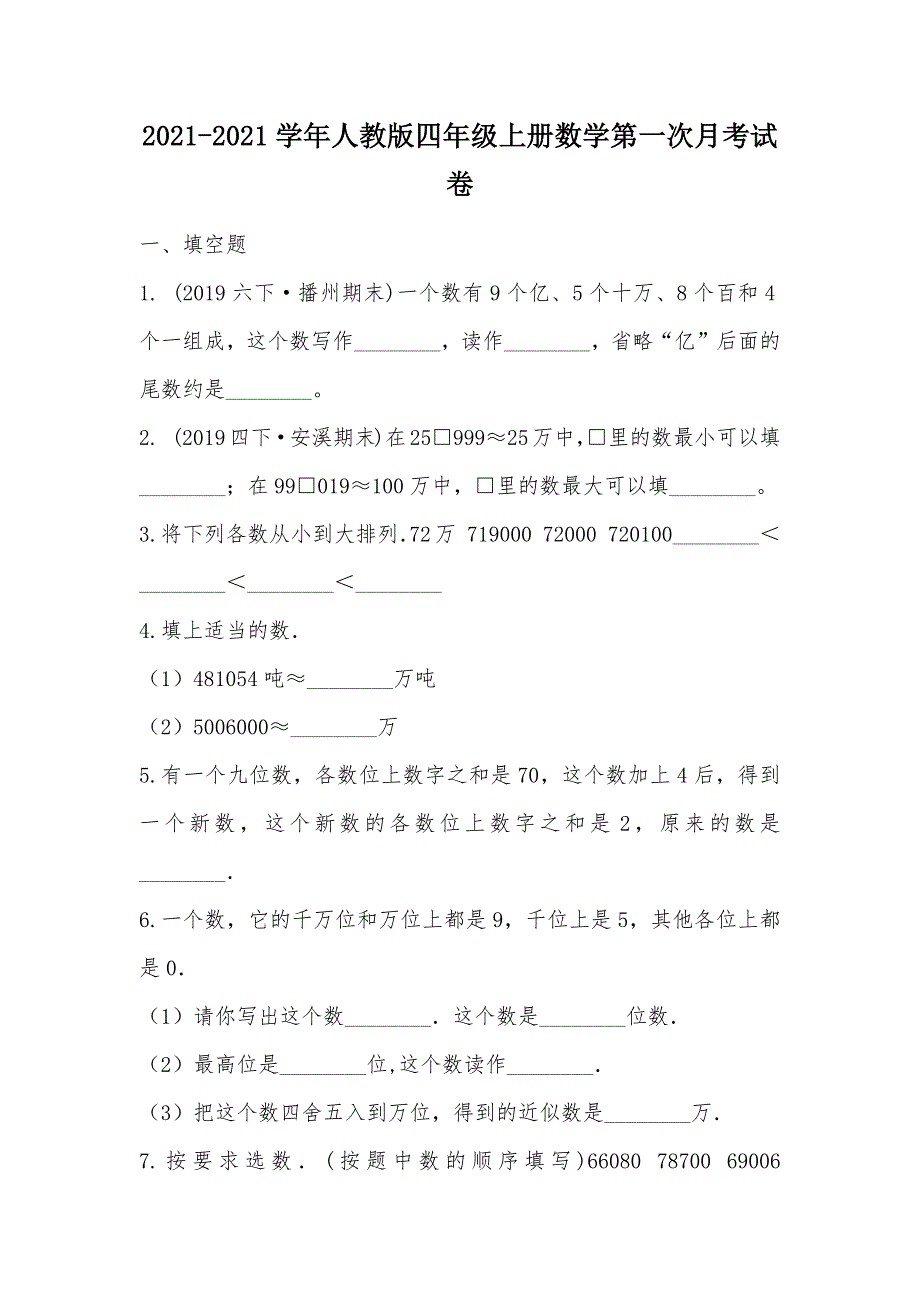 2021-2021学年人教版四年级上册数学第一次月考试
卷
一、填空题
1. (2019六下·播州期末)一个数有9个亿、5个十万、8个百和4
个一组成，这个数写作________，读作________，省略“亿”后面的
尾数约是________。
2. (2019四下·安溪期末)在25□999≈25万中,□里的数最小可以填
________；在99□019≈100万中，□里的数最大可以填________。
3.将下列各数从小到大排列.72万 719000 72000 720100________＜
________＜________＜________
4.填上适当的数.
（1）481054吨≈________万吨
（2）5006000≈________万
5.有一个九位数，各数位上数字之和是70，这个数加上4后，得到
一个新数，这个新数的各数位上数字之和是2，原来的数是
________.
6.一个数，它的千万位和万位上都是9，千位上是5，其他各位上都
是0.
（1）请你写出这个数________．这个数是________位数.
（2）最高位是________位,这个数读作________.
（3）把这个数四舍五入到万位，得到的近似数是________万.
7.按要求选数.(按题中数的顺序填写)66080 78700 69006